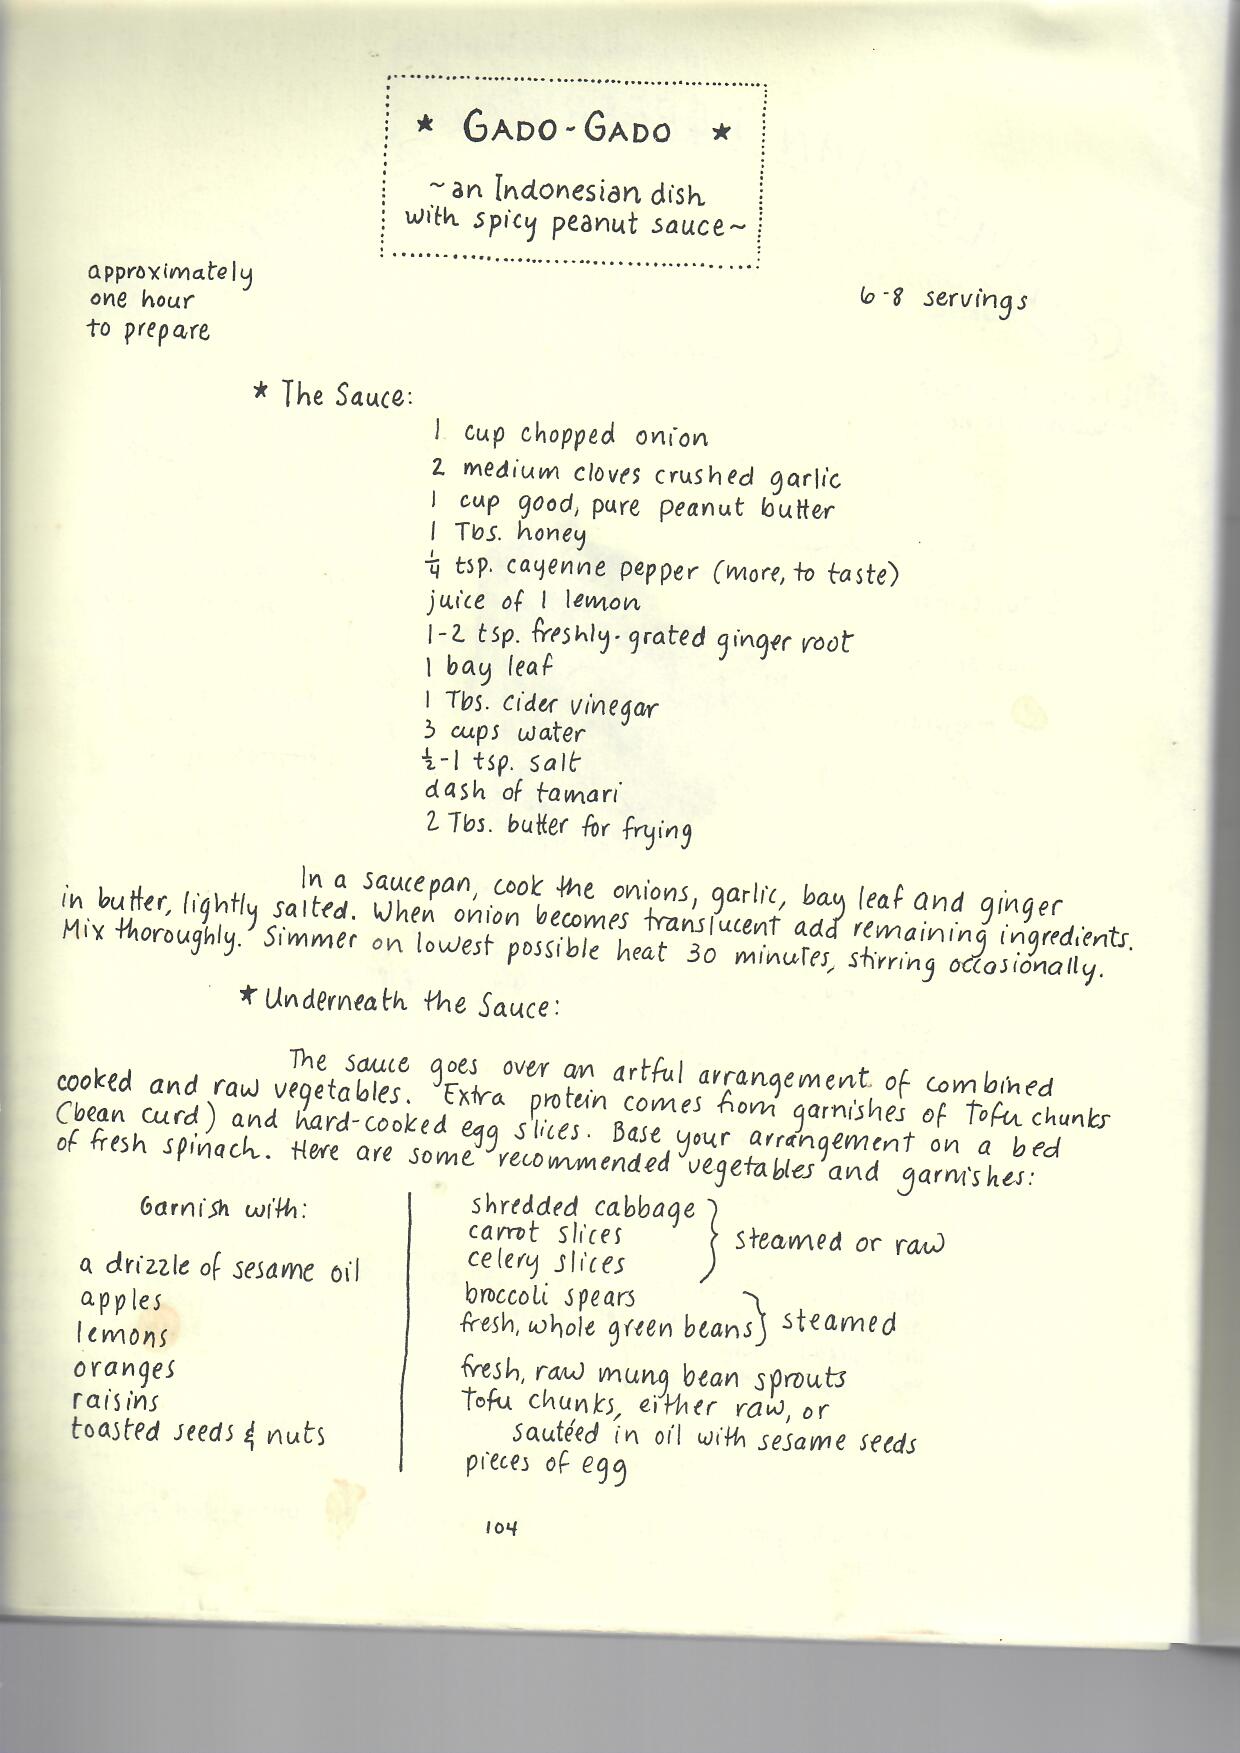 ★ GADO-GADO ★
~an Indonesian dish
with spicy peanut sauce~
approximately
one hour
to prepare
6-8 servings
★ The Sauce:
1 cup chopped onion
2 medium cloves crushed garlic
1 cup good, pure peanut butter
1 Tbs. honey
¼ tsp. cayenne pepper (more, to taste)
juice of 1 lemon
1-2 tsp. freshly-grated ginger root
1 bay leaf
1 Tbs. cider vinegar
3 cups water
½-1 tsp. salt
dash of tamari
2 Tbs. butter for frying
In a saucepan, cook the onions, garlic, bay leaf and ginger
in butter, lightly salted. When onion becomes translucent add remaining ingredients.
Mix thoroughly. Simmer on lowest possible heat 30 minutes, stirring occasionally.
★ Underneath the Sauce:
The sauce goes over an artful arrangement of combined
cooked and raw vegetables. Extra protein comes from garnishes of Tofu chunks
(bean curd) and hard-cooked egg slices. Base your arrangement on a bed
of fresh spinach. Here are some recommended vegetables and garnishes:
Garnish with:
a drizzle of sesame oil
apples
lemons
oranges
raisins
toasted seeds & nuts
shredded cabbage
carrot slices
celery slices
steamed or raw
broccoli spears
fresh, whole green beans
steamed
fresh, raw mung bean sprouts
Tofu chunks, either raw, or
sautéed in oil with sesame seeds
pieces of egg
104